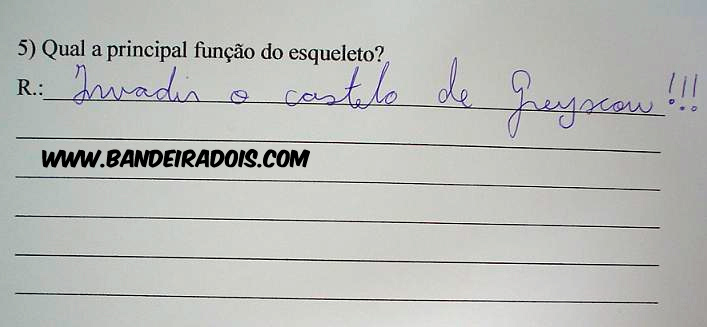 5) Qual a principal função do esqueleto?
R.: Invadir o castelo de Greyscow!!!
WWW.BANDEIRADOIS.COM